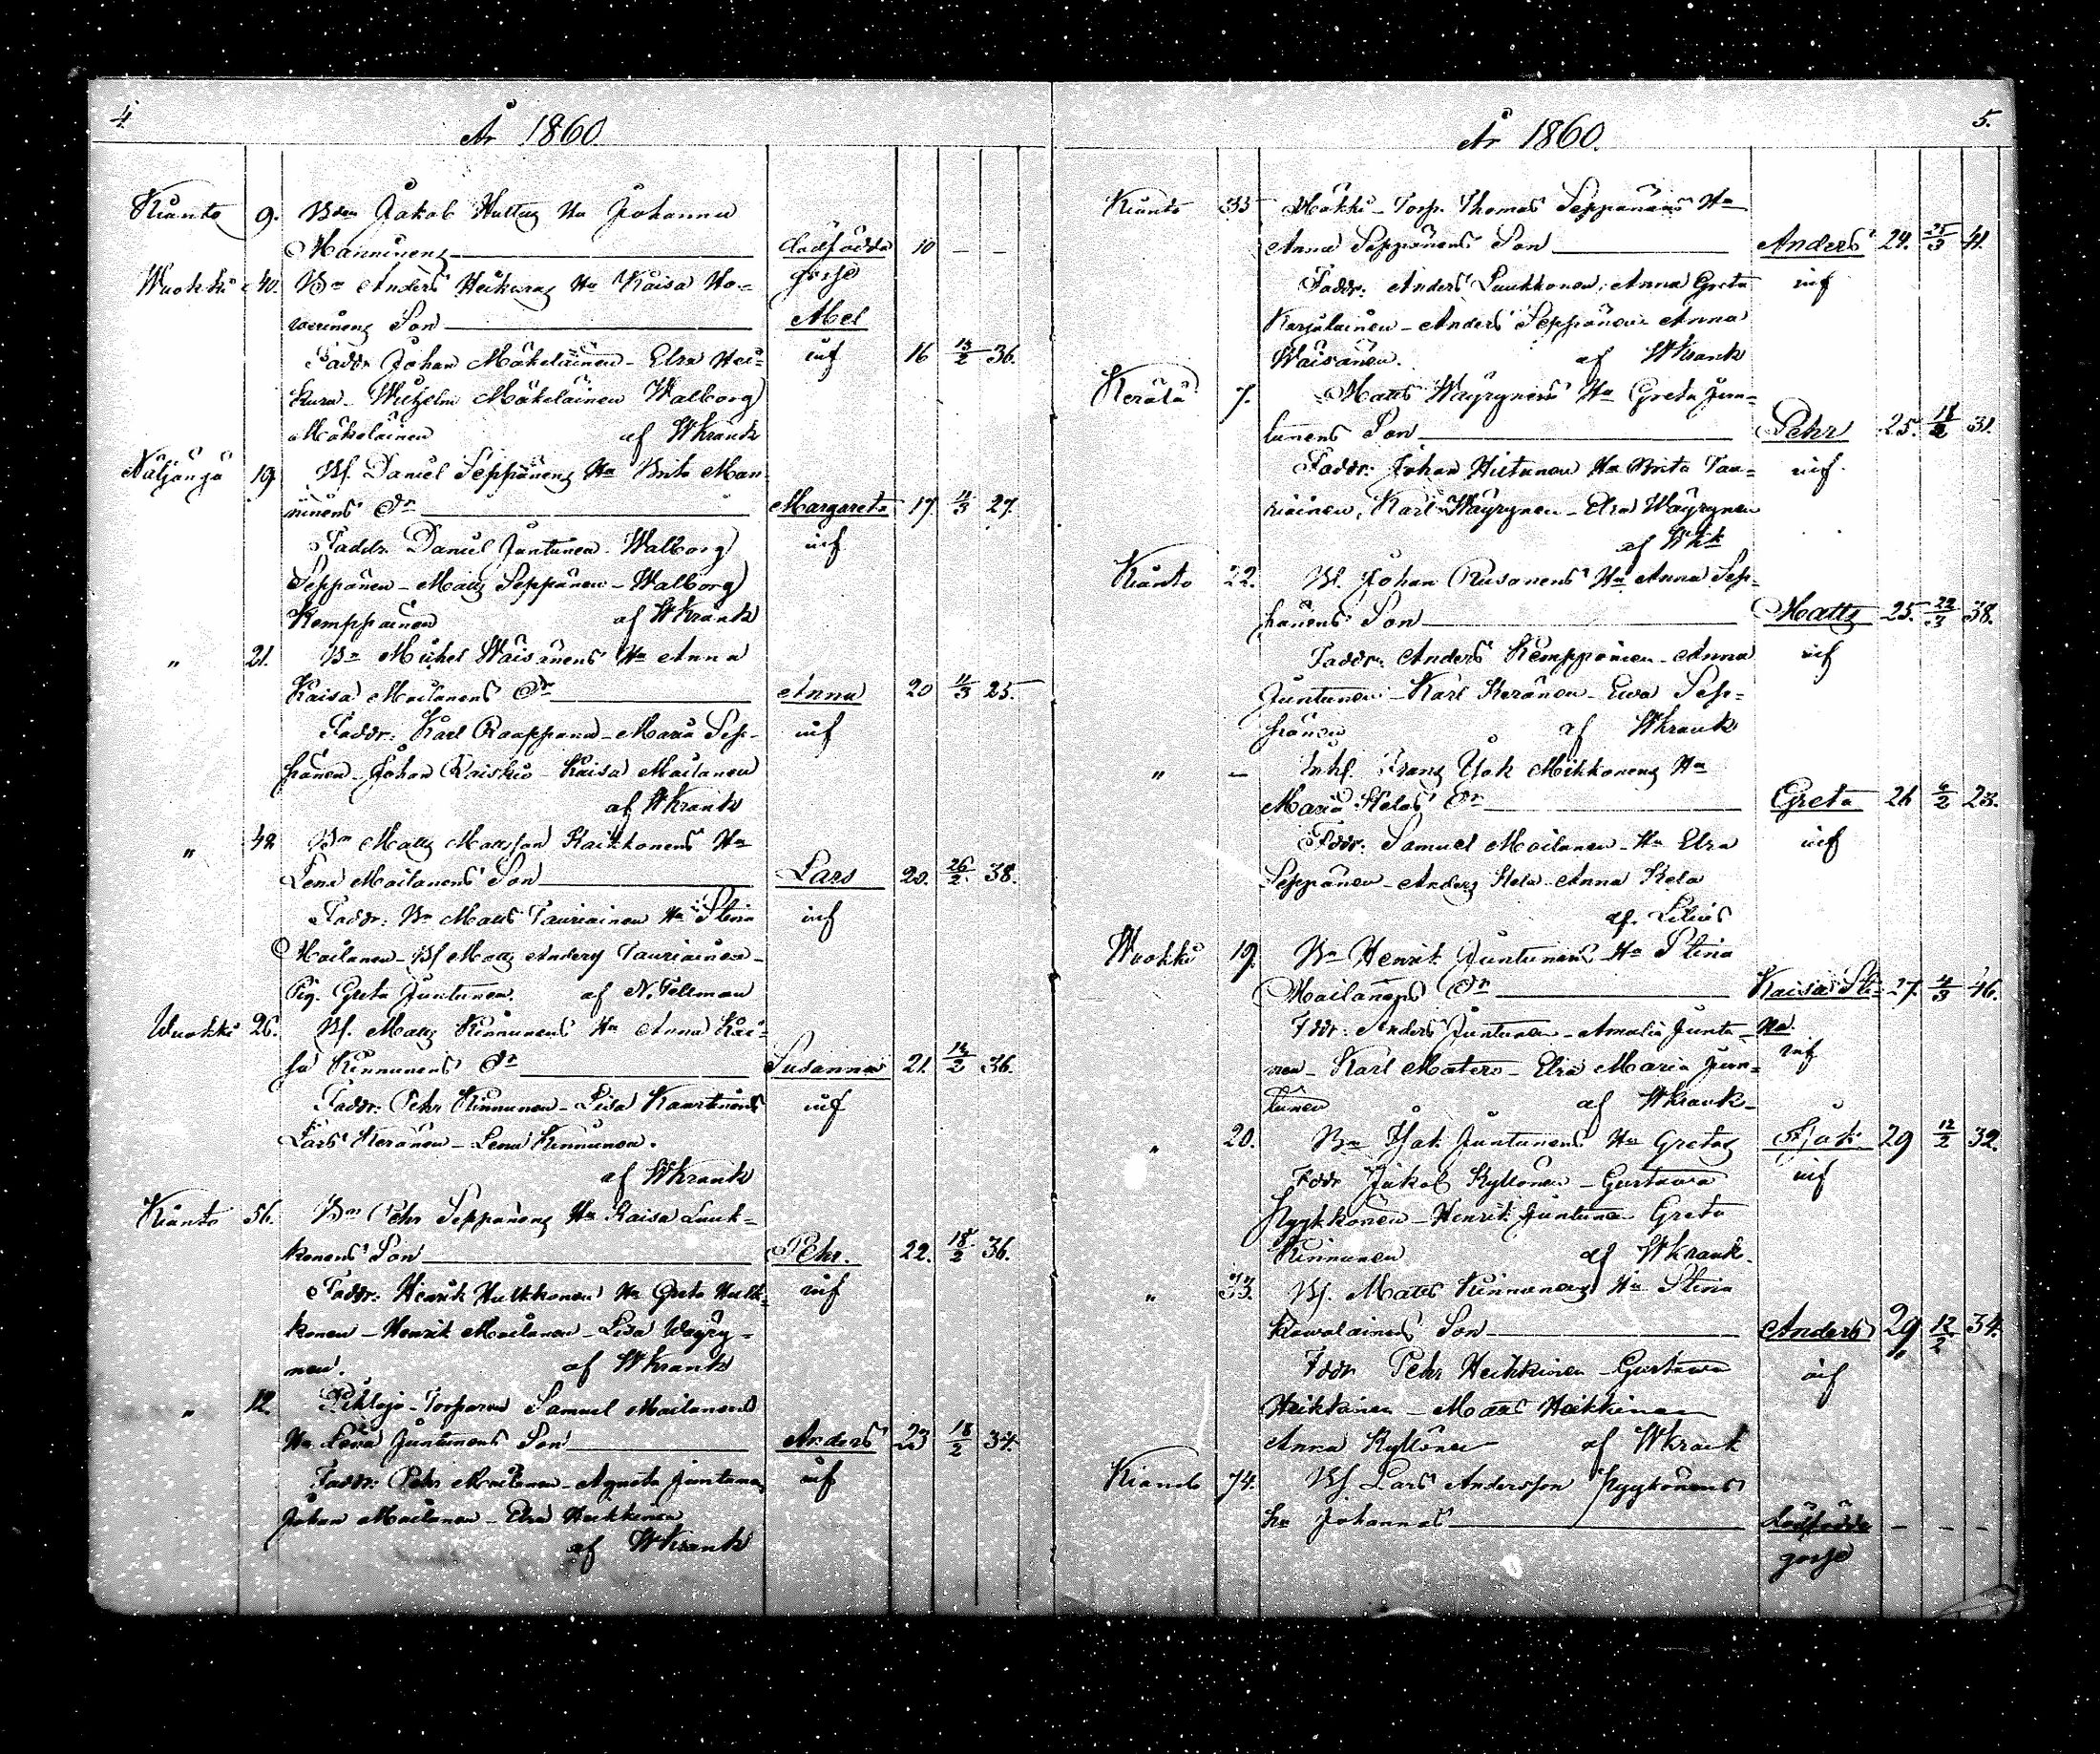 4.
År 1860.
Kianto 9. Bden Jakob Hulttz Hu Johanna
Manninens dödfödde 10 — —
gosse
Wuokki 40. Bn Anders Heikuraz Hu Kaisa Ho-
verinenz Son Abel
Faddr Johan Mäkeläinen - Elsa Hei- inf 16 15/2 36.
kura - Wilhelm Mäkeläinen Walborg
Mäkeläinen af WKrank
Näljängä 19. Bf. Daniel Seppänenz Hu Brita Man-
ninens Dr Margareta 17 11/3 27.
Faddr. Daniel Juntunen - Walborg inf
Seppänen - Mattz Seppänen - Walborg
Kemppainen af WKrank
" 21. Bn Michel Wäisänens Hu Anna
Kaisa Moilanens Dr Anna 20 11/3 25.
Faddr: Karl Raappana - Maria Sep- inf
pänen - Johan Raiskio - Kaisa Moilanen
af WKrank
" 42 Bn Mattz Mattsson Kaikkonens Hu
Lena Moilanens Son Lars 20. 26/2 38.
Faddr: Bn Matts Tauriainen Hu Stina inf
Moilanen - Bf Mattz Andersz Tauriainen -
Pig. Greta Juntunen. af N. Fellman
Wuokki 26. Bf. Mattz Kinnunens Hu Anna Kai-
sa Kinnunens Dr Susanna 21. 14/2 36.
Faddr: Pehr Kinnunen - Lisa Kaartinens inf
Lars Keränen - Lena Kinnunen.
af WKrank
Kianto 56. Bn Pehr Seppänenz Hu Kaisa Luuk-
konens Son Pehr. 22. 18/2 36.
Faddr: Henrik Hulkkonen Hu Greta Hulk- inf
konen - Henrik Moilanen - Lisa Wäyry-
nen. af WKrank
" 12. Torparen Samuel Moilanens
Hu Lena Juntunens Son Anders 23 18/2 34.
Faddr: Pehr Moilanen - Agneta Juntunen inf
Johan Moilanen - Elsa Heikkinen
af WKrank
5.
År 1860.
Kianto 35 Mökki - Torp. Thomas Seppänens Hu
Anna Seppänens Son Anders 24. 25/3 41.
Faddr: Anders Luukkonen, Anna Greta inf
Karjalainen - Anders Seppänen Anna
Wäisänen. af WKrank
Kerälä 7. Matts Wäyrynens Hu Greta Jun-
tunens Son Pehr 25. 18/2 31.
Faddr: Johan Hiltunen Hu Brita Tau- inf.
riainen, Karl Wäyrynen - Elsa Wäyrynen
af WKk
Kianto 22. Bf. Johan Rusanens Hu Anna Sep-
pänens Son Mattz 25. 22/3 38.
Faddr: Anders Kemppainen - Anna inf
Juntunen - Karl Keränen - Ewa Sep-
pänen af WKrank
" — Inhf. Franz Isak Mikkonenz Hu
Maria Kelas Dr Greta 26 6/2 23.
Faddr: Samuel Moilanen - Hu Elsa inf
Seppänen - Anders Kela - Anna Kela
af. Lilius
Wuokki 19. Bn Henrik Juntunens Hu Stina
Moilanens Dr Kaisa Sti- 27. 4/3 46.
Fddr: Anders Juntunen - Amalia Juntu- na.
nen - Karl Matero - Elsa Maria Jun- inf
tunen af WKrank -
" 20. Bn Isak Juntunens Hu Gretas Isak 29 12/2 32.
Fddr Jakob Kyllönen - Gustava inf
Pyykkönen - Henrik Juntunen Greta
Kinnunen af WKrank.
" 33. Bf. Matts Kinnunens Hu Stina
Kovalainens Son Anders 29 12/2 34.
Fddr Pehr Heikkinen - Gustava inf
Heikkinen - Matts Heikkinen
Anna Kyllönen af WKrank
Kianto 74. Bf Lars Andersson Pyykönens
hu Johannas dödfödde — — —
gosse